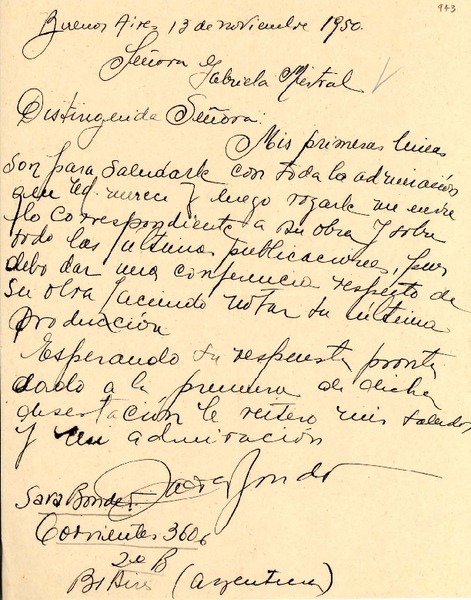 943
Buenos Aires 13 de noviembre 1950.
Señora
Gabriela Mistral
Distinguida Señora:
Mis primeras lineas
son para saludarle con toda la admiración
que Ud. merece y luego rogarle me envie
lo correspondiente a su obra y sobre
todo las ultimas publicaciones, pues
debo dar una conferencia respecto de
su obra haciendo notar su ultima
producción
Esperando su respuesta pronta
dado a la premura de dicha
disertación le reitero mis saludos
y mi admiración
Sara Bonder
Corrientes 3606
2o B
Bs Aires (Argentina)